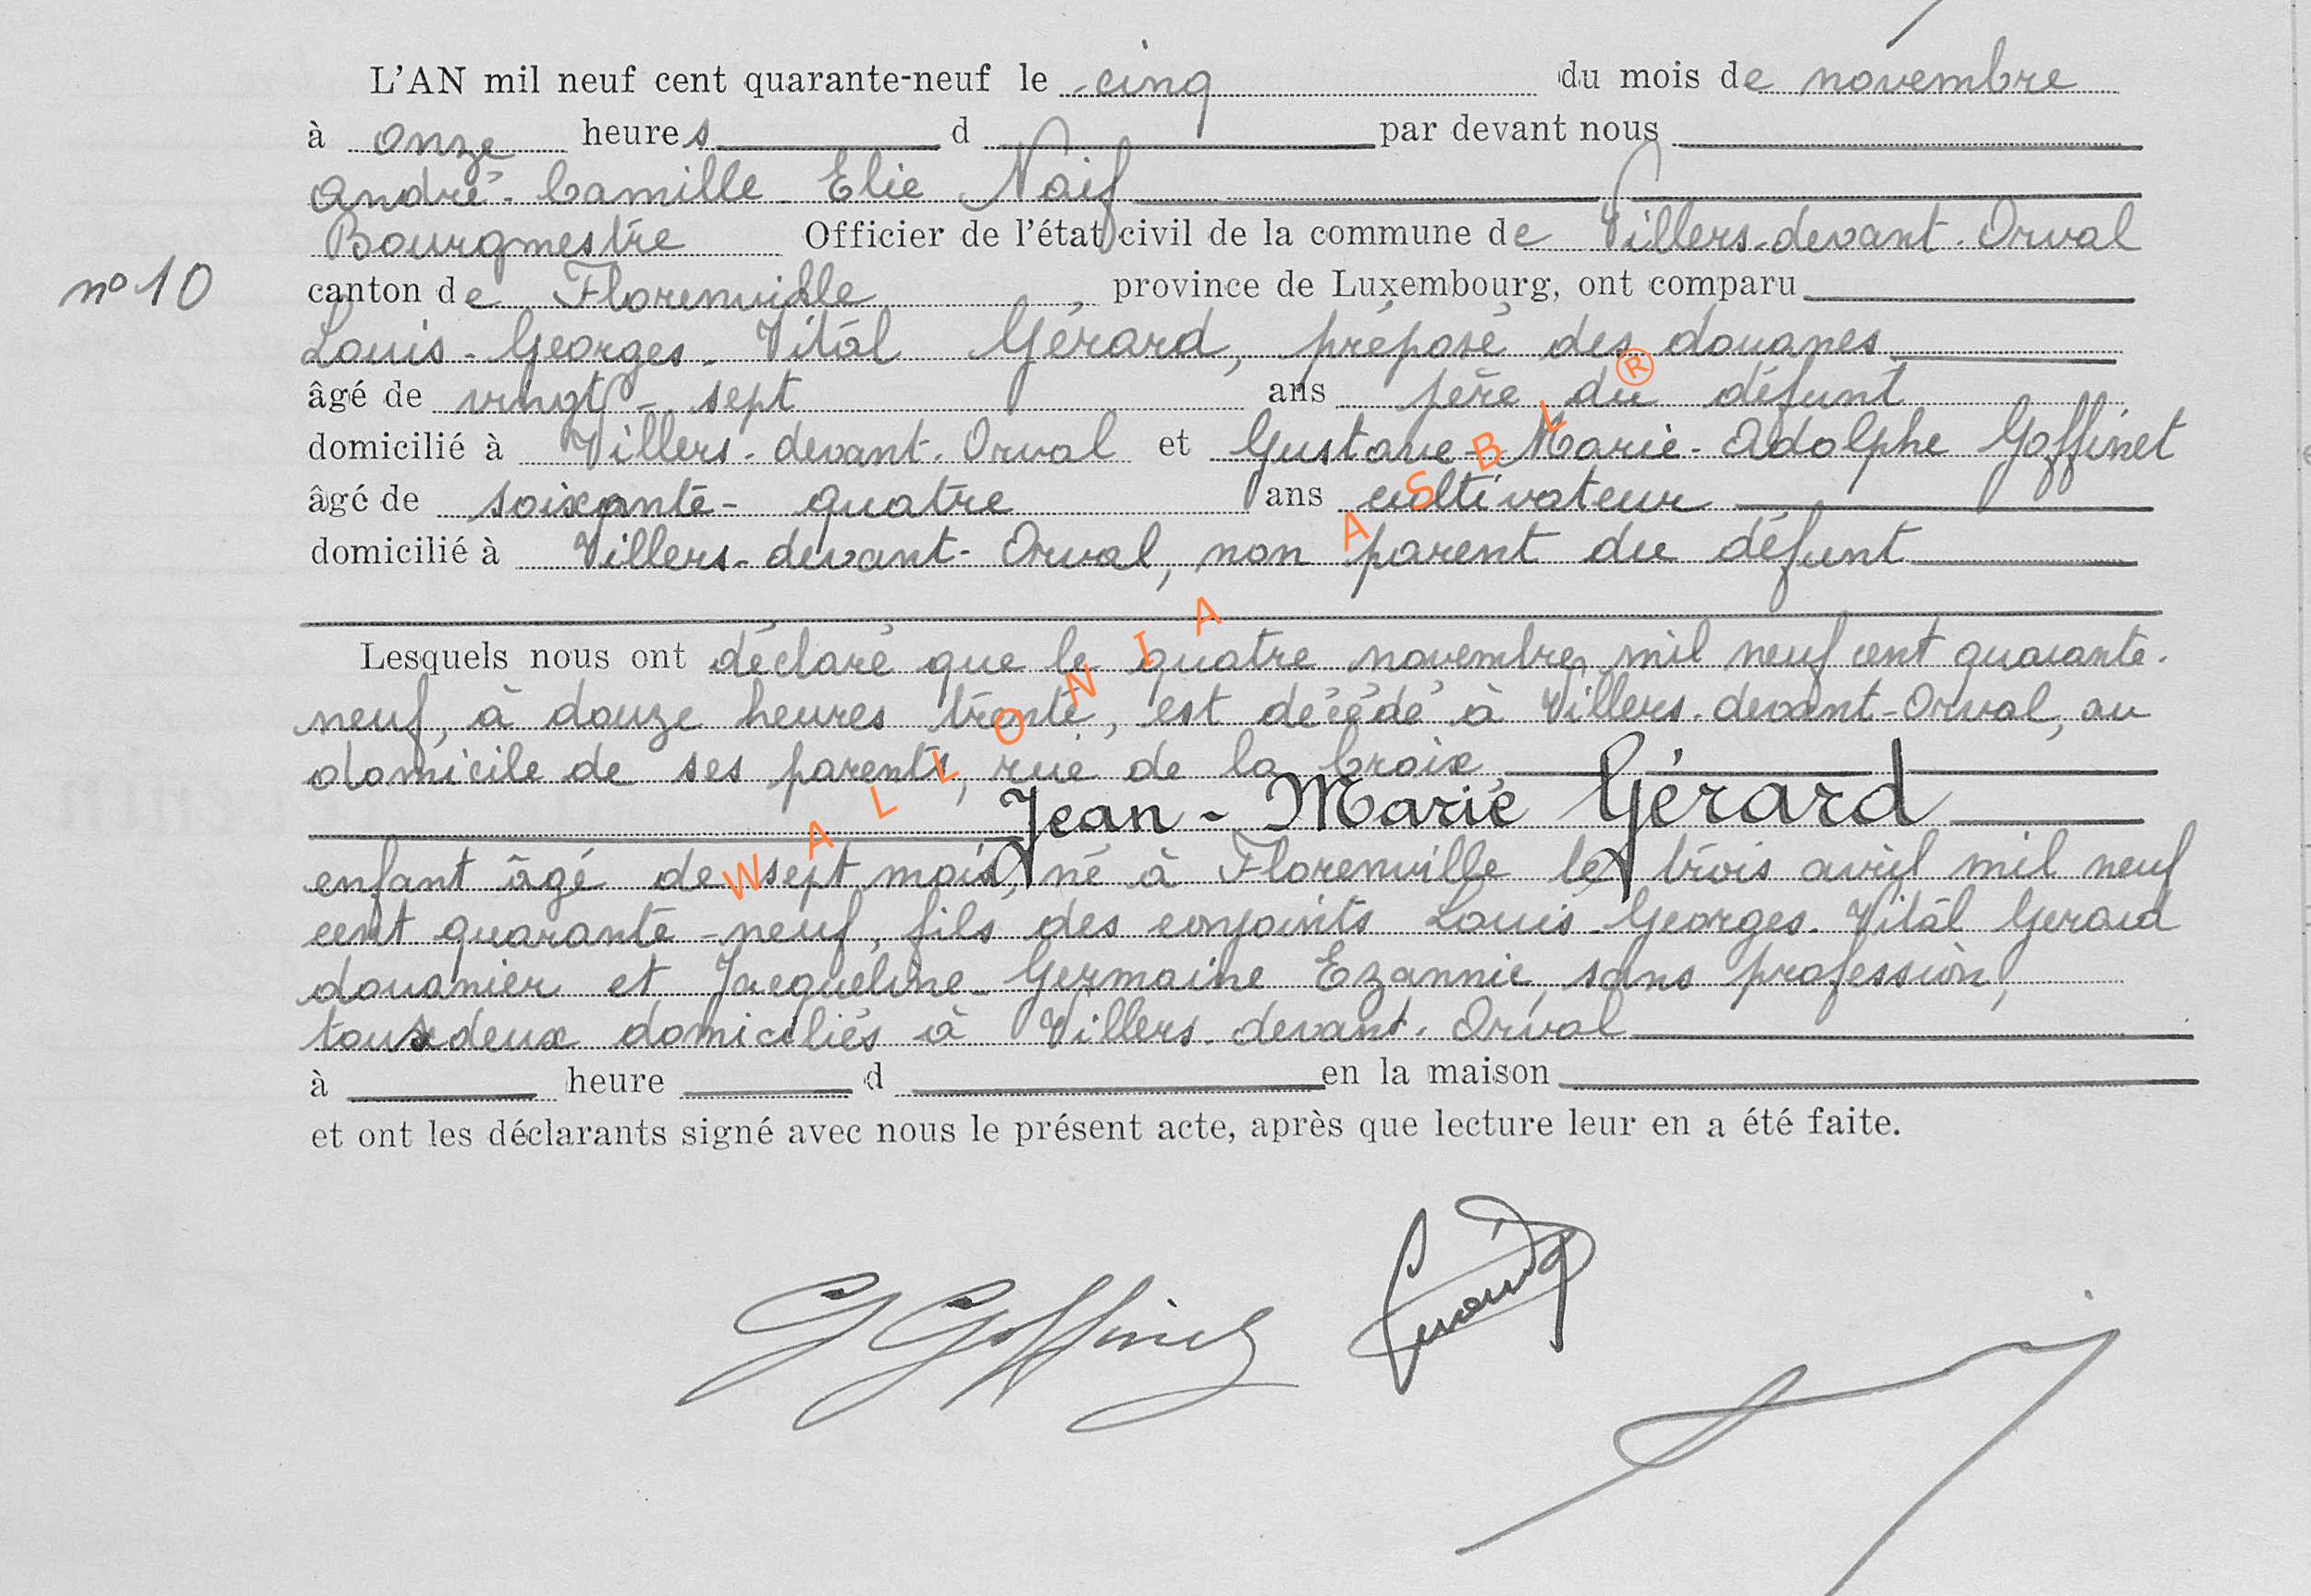 L'AN mil neuf cent quarante-neuf le cinq du mois de novembre
à onze heures d par devant nous
André-Camille-Elie Naif
Bourgmestre Officier de l'état civil de la commune de Villers-devant-Orval
n° 10
canton de Florenville, province de Luxembourg, ont comparu
Louis-Georges-Vital Gérard, préposé des douanes
âgé de vingt-sept ans père du défunt
domicilié à Villers-devant-Orval et Gustave-Marie-Adolphe Goffinet
âgé de soixante-quatre ans cultivateur
domicilié à Villers-devant-Orval, non parent du défunt
Lesquels nous ont déclaré que le quatre novembre mil neuf cent quarante-
neuf, à douze heures trente, est décédé à Villers-devant-Orval, au
domicile de ses parents, rue de la Croix,
Jean-Marie Gérard
enfant âgé de sept mois, né à Florenville le trois avril mil neuf
cent quarante-neuf, fils des conjoints Louis-Georges-Vital Gerard
douanier et Jacqueline-Germaine Ezannic, sans profession,
tous deux domiciliés à Villers-devant-Orval
à heure d en la maison
et ont les déclarants signé avec nous le présent acte, après que lecture leur en a été faite.
G Goffinet Gerard
WALLONIA ASBL ®